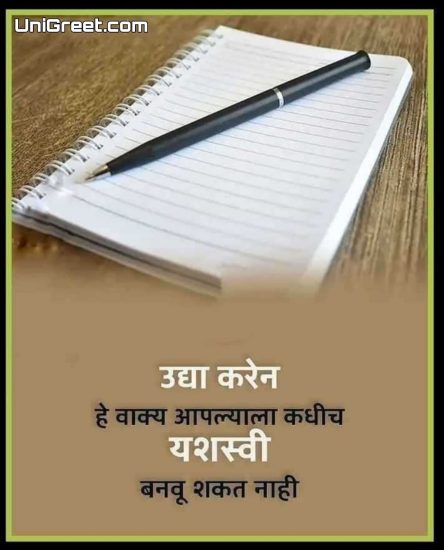 UniGreet.com
उद्या करेन
हे वाक्य आपल्याला कधीच
यशस्वी
बनवू शकत नाही